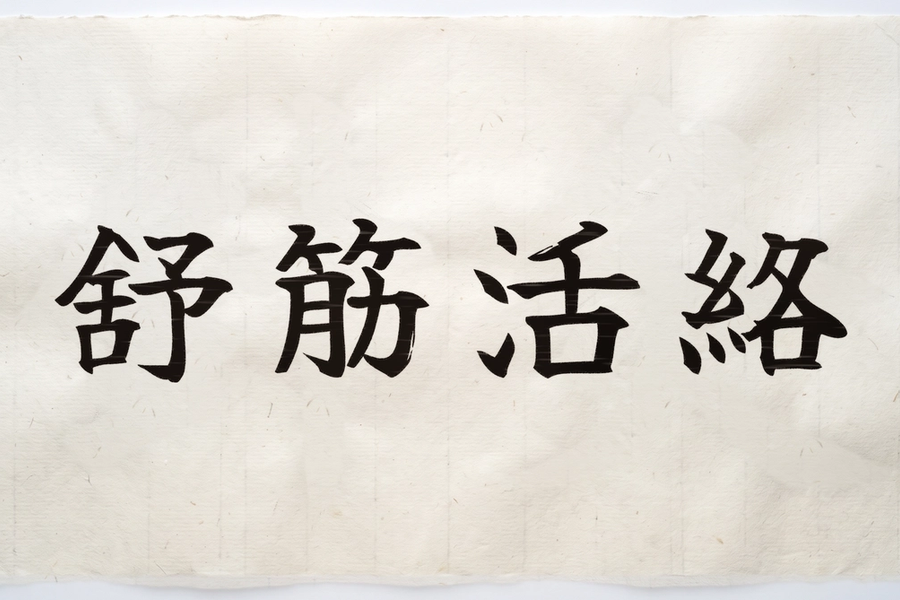 舒筋活絡